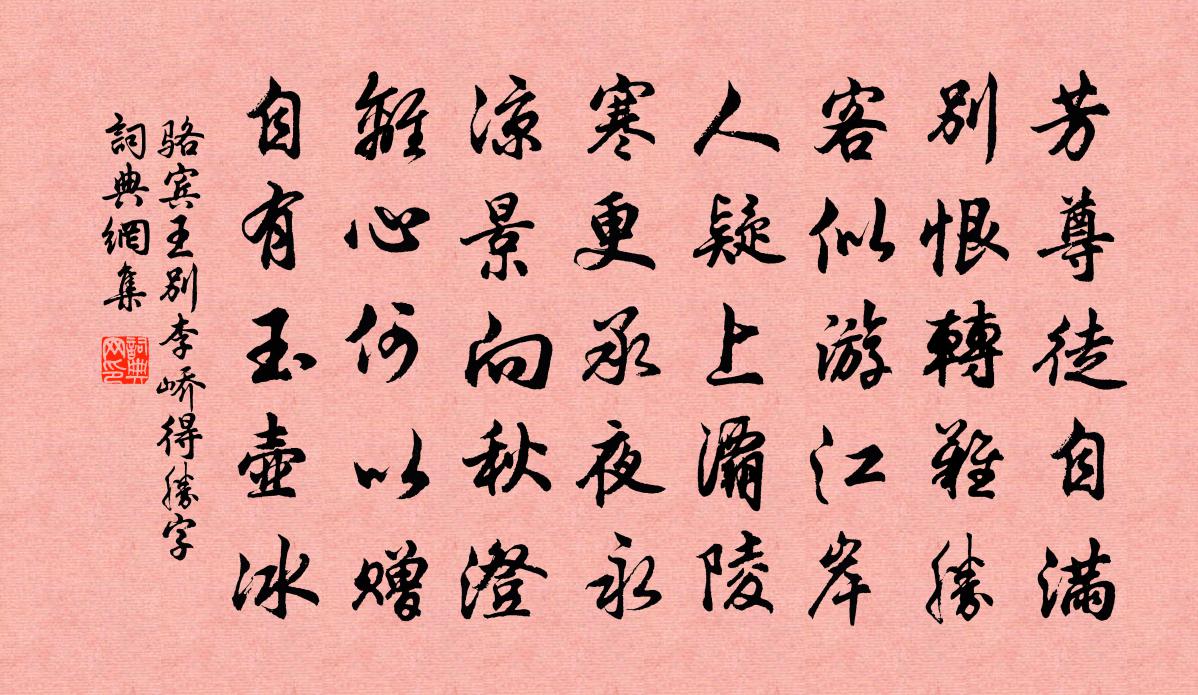 芳尊徒自滿
别恨轉難勝
客似游江岸
人疑上灞陵
寒更承夜永
涼景向秋澄
離心何以贈
自有玉壷冰
骆宾王别李峤得勝字
詞典網集
詞典网印